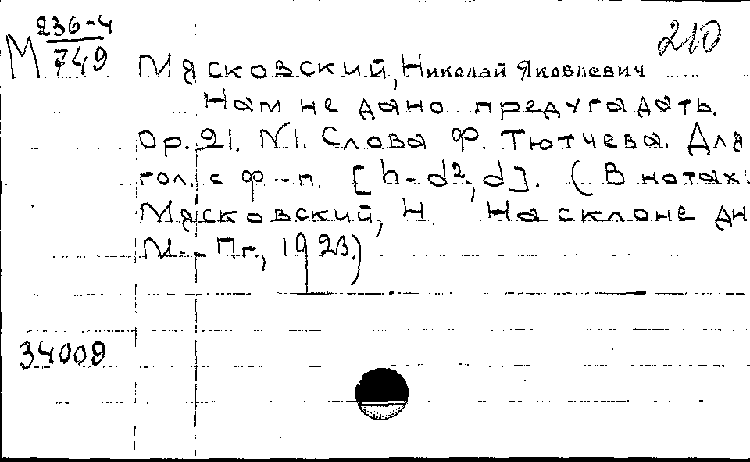 236-4
М 749
210
Мясковский, Николай Яковлевич
Нам не дано предугадать.
Ор. 21. N1. Слова Ф. Тютчева. Для
гол. с ф-п. [h-d², d]. (В нотах:
Мясковский, Н. На склоне дн
М.-Пг., 1923.)
34009